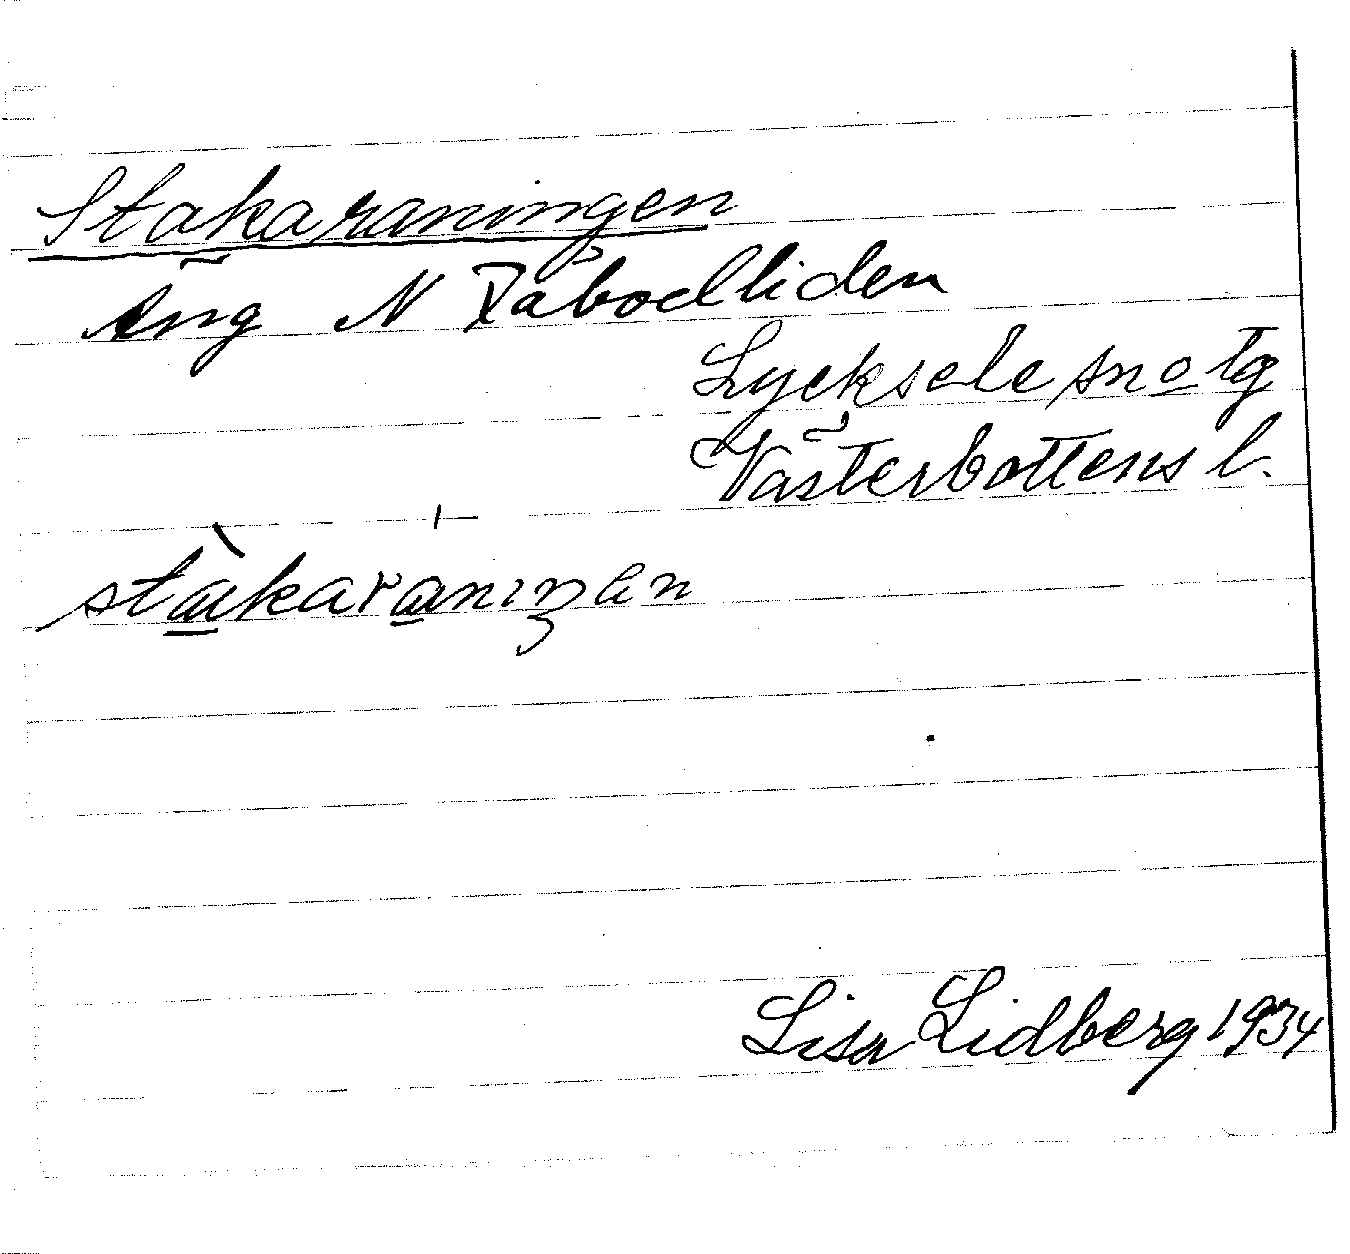 Stakaraningen
Äng N Råboelliden
Lycksele sn o tg
Västerbottens l.
stàkaraniŋen
Lisa Lidberg 1934